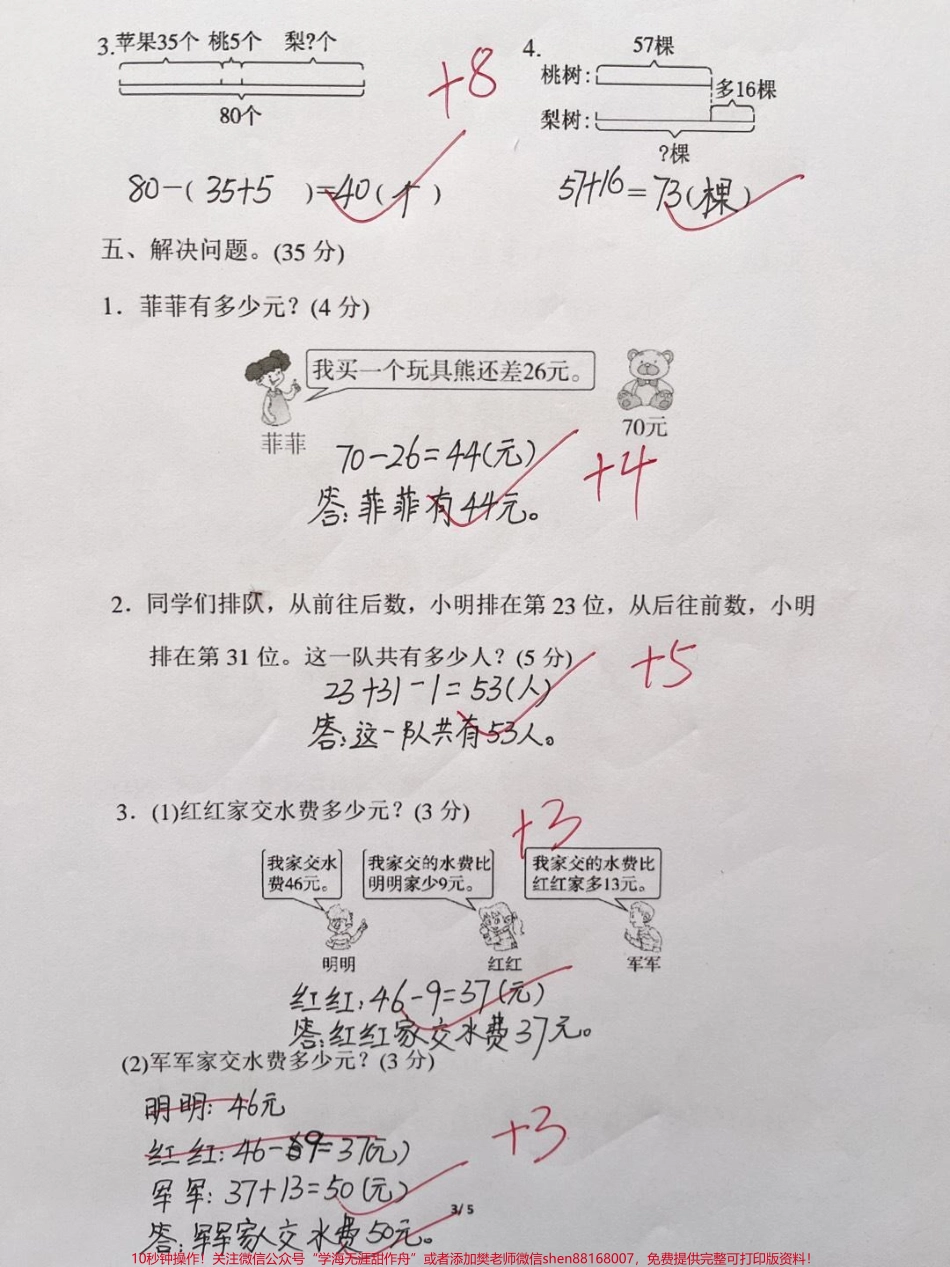 3.苹果35个 桃5个 梨?个
80个
+8
80-(35+5)=40(个)
4.
57棵
桃树:
多16棵
梨树:
?棵
57+16=73(棵)
五、解决问题。(35 分)
1．菲菲有多少元？(4 分)
我买一个玩具熊还差26元。
菲菲
70元
70-26=44(元)
+4
答:菲菲有44元。
2．同学们排队，从前往后数，小明排在第 23 位，从后往前数，小明
排在第 31 位。这一队共有多少人？(5 分)
+5
23+31-1=53(人)
答:这一队共有53人。
3．(1)红红家交水费多少元？(3 分)
+3
我家交水
费46元。
我家交的水费比
明明家少9元。
我家交的水费比
红红家多13元。
明明
红红
军军
红红:46-9=37(元)
答:红红家交水费37元。
(2)军军家交水费多少元？(3 分)
明明:46元
红红:46-9=37(元)
+3
军军:37+13=50(元)
3/5
答:军军家交水费50元。
10秒钟操作！关注微信公众号“学海无涯甜作舟”或者添加樊老师微信shen88168007，免费提供完整可打印版资料！